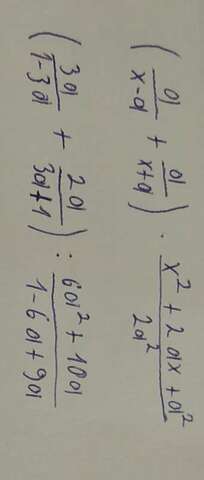 (a/(x-a) + a/(x+a)) · (x² + 2ax + a²)/(2a²)
(3a/(1-3a) + 2a/(3a+1)) : (6a² + 10a)/(1-6a+9a)